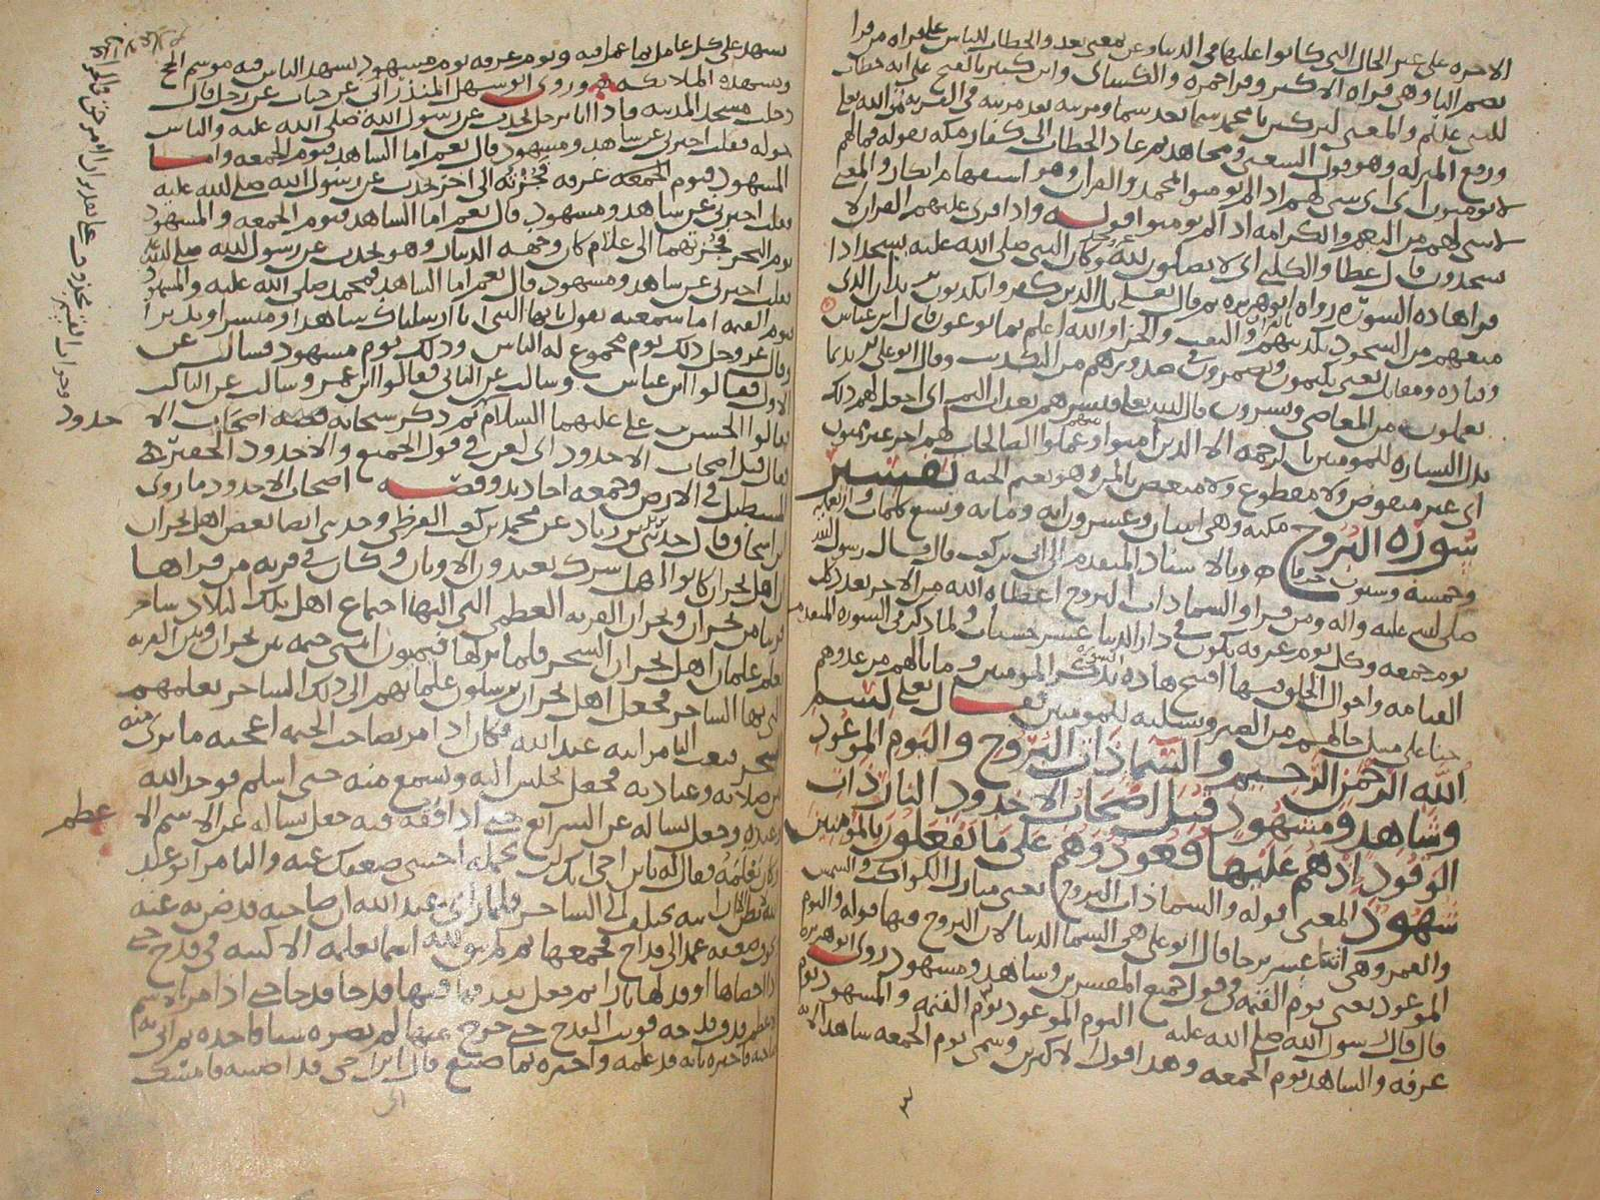 الاخره على غير الحال التي كانوا عليها في الدنيا وعن بمعنى بعد والخطاب للناس على قراه من قرا
بضم البا وهي قراه الاكثر وقرا حمزه والكسائى وابن كثير بالفتح على انه خطاب
للنبي عليلم والمعنى لتركبن يا محمد سما بعد سما ومرتبه بعد مرتبه في القربه من الله تعلى
ورفع المنزله وهو قول الشعبي ومجاهد ثم عاد الخطاب الى كفار مكه بقوله فما لهم
لا يومنون اى اى شى لهم اذا لم يومنوا بمحمد والقران وهو استفهام انكار والمعنى
لا شى لهم من النعيم والكرامه اذا لم يومنوا قوله واذا قرى عليهم القران لا
يسجدون قال عطا والكلبي اى لا يصلون لله وكان النبي صلى الله عليه يسجد اذا
قرا هاذه السوره رواه ابو هريره ثم قال تعلى بل الذين كفروا يكذبون
وقتاده ومقاتل يعني يكتمون ويضمرون في صدورهم من التكذيب وقال ابو على بن
يعملون من المعاصى ويسرون قال الله تعلى فبشرهم بعذاب اليم اى اجعل لهم ذلك
بدل البشاره للمومنين بالرحمه الا الذين امنوا وعملوا الصالحات لهم اجر غير ممنون
اى غير منقوص ولا مقطوع وهو نعيم الجنه تفسير
سوره البروج مكيه وهي اثنتان وعشرون ايه ومايه وتسع كلمات واربعمايه
وخمسه وستون حرفا وبالاسناد المتقدم الى ابى بن كعب قال قال رسول الله
صلى الله عليه واله ومن قرا والسما ذات البروج اعطاه الله من الاجر بعدد كل
يوم جمعه وكل يوم عرفه يكون في دار الدنيا عشر حسنات ولما ذكر في السوره المتقدمه
القيامه واحوال الخلق فيها افتتح هاذه السوره بذكر المومنين وما نالهم من عدوهم
من الصبر وتسليه للمومنين فقال تعلى بسم
الله الرحمن الرحيم والسما ذات البروج واليوم الموعود
وشاهد ومشهود قتل اصحاب الاخدود النار ذات
الوقود اذ هم عليها قعود وهم على ما يفعلون بالمومنين
شهود المعنى قوله والسما ذات البروج يعني منازل الكواكب والشمس
والقمر وهي اثنا عشر برجا قال ابو على هي السما الدنيا لان البروج فيها قوله واليوم
الموعود يعني يوم القيمه في قول جميع المفسرين وشاهد ومشهود روى ابو هريره
قال قال رسول الله صلى الله عليه اليوم الموعود يوم القيمه والمشهود يوم
عرفه والشاهد يوم الجمعه وهذا قول الاكثرين وسمى يوم الجمعه شاهدا لانه
يشهد على كل عامل بما عمل فيه ويوم عرفه يوم مشهود يشهد الناس فيه موسم الحج
وتشهده الملائكه وروى ابو سهل المنذرانى عن حباب عن رجل قال
دخلت مسجد المدينه فاذا انا برجل يحدث عن رسول الله صلى الله عليه والناس
حوله فقلت اخبرنى عن شاهد ومشهود قال نعم اما الشاهد فيوم الجمعه واما
المشهود فيوم عرفه فجزته الى اخر يحدث عن رسول الله صلى الله عليه
فقلت اخبرنى عن شاهد ومشهود قال نعم اما الشاهد فيوم الجمعه والمشهود
يوم النحر فجزتهما الى غلام كان وجهه الدينار وهو يحدث عن رسول الله صلى الله عليه
فقلت اخبرنى عن شاهد ومشهود قال نعم اما الشاهد فمحمد صلى الله عليه والمشهود
يوم القيمه اما سمعته يقول يايها النبى انا ارسلناك شاهدا ومبشرا ونذيرا
وقال عز وجل ذلك يوم مجموع له الناس وذلك يوم مشهود فسالت عن
الاول فقالوا ابن عباس وسالت عن الثانى فقالوا ابن عمر وسالت عن الثالث
فقالوا الحسن بن على عليهما السلام ثم ذكر سبحانه قصه اصحاب الا
خدود
فقال قتل اصحاب الاخدود اى لعن في قول الجميع والاخدود الحفيره
المستطيل في الارض وجمعه اخاديد وقصه اصحاب الاخدود ما روى
ابن اسحاق قال حدثنى يزيد بن زياد عن محمد بن كعب القرظى وحدثنى ايضا بعض اهل نجران
ان اهل نجران كانوا اهل شرك يعبدون الاوثان وكان في قريه من قراها
قريبا من نجران ونجران القريه العظمى التي اليها اجتماع اهل تلك البلاد ساحر
يعلم غلمان اهل نجران السحر فلما نزلها فيميون ابتنى خيمه بين نجران وبين القريه
التي بها الساحر فجعل اهل نجران يرسلون غلمانهم الى ذلك الساحر يعلمهم
السحر فبعث الثامر ابنه عبد الله فكان اذا مر بصاحب الخيمه اعجبه ما يرى منه
من صلاته وعبادته فجعل يجلس اليه ويسمع منه حتى اسلم فوحد الله
وعبده وجعل يساله عن الشرائع حتى اذا فقه فيه جعل يساله عن الاسم الا
عظم
وكان يعلمه فقال له يابن اخى انك لن تحمله اخشى ضعفك عنه والثامر ابو عبد
الله يظن ان ابنه يختلف الى الساحر فلما راى عبد الله ان صاحبه قد ضن به عنه
عمد الى قداح فجمعها ثم لم يبق لله اسما يعلمه الا كتبه في قدح حتى
اذا احصاها اوقد لها نارا ثم جعل يقذفها فيها قدحا قدحا حتى اذا مر بالاسم
الاعظم قذف قدحه فوثب القدح حتى خرج منها لم يضره شيا فاخذه ثم اتى به
صاحبه فاخبره بانه قد علمه واخبره بما صنع قال اى ابن اخى قد اصبته فامسك